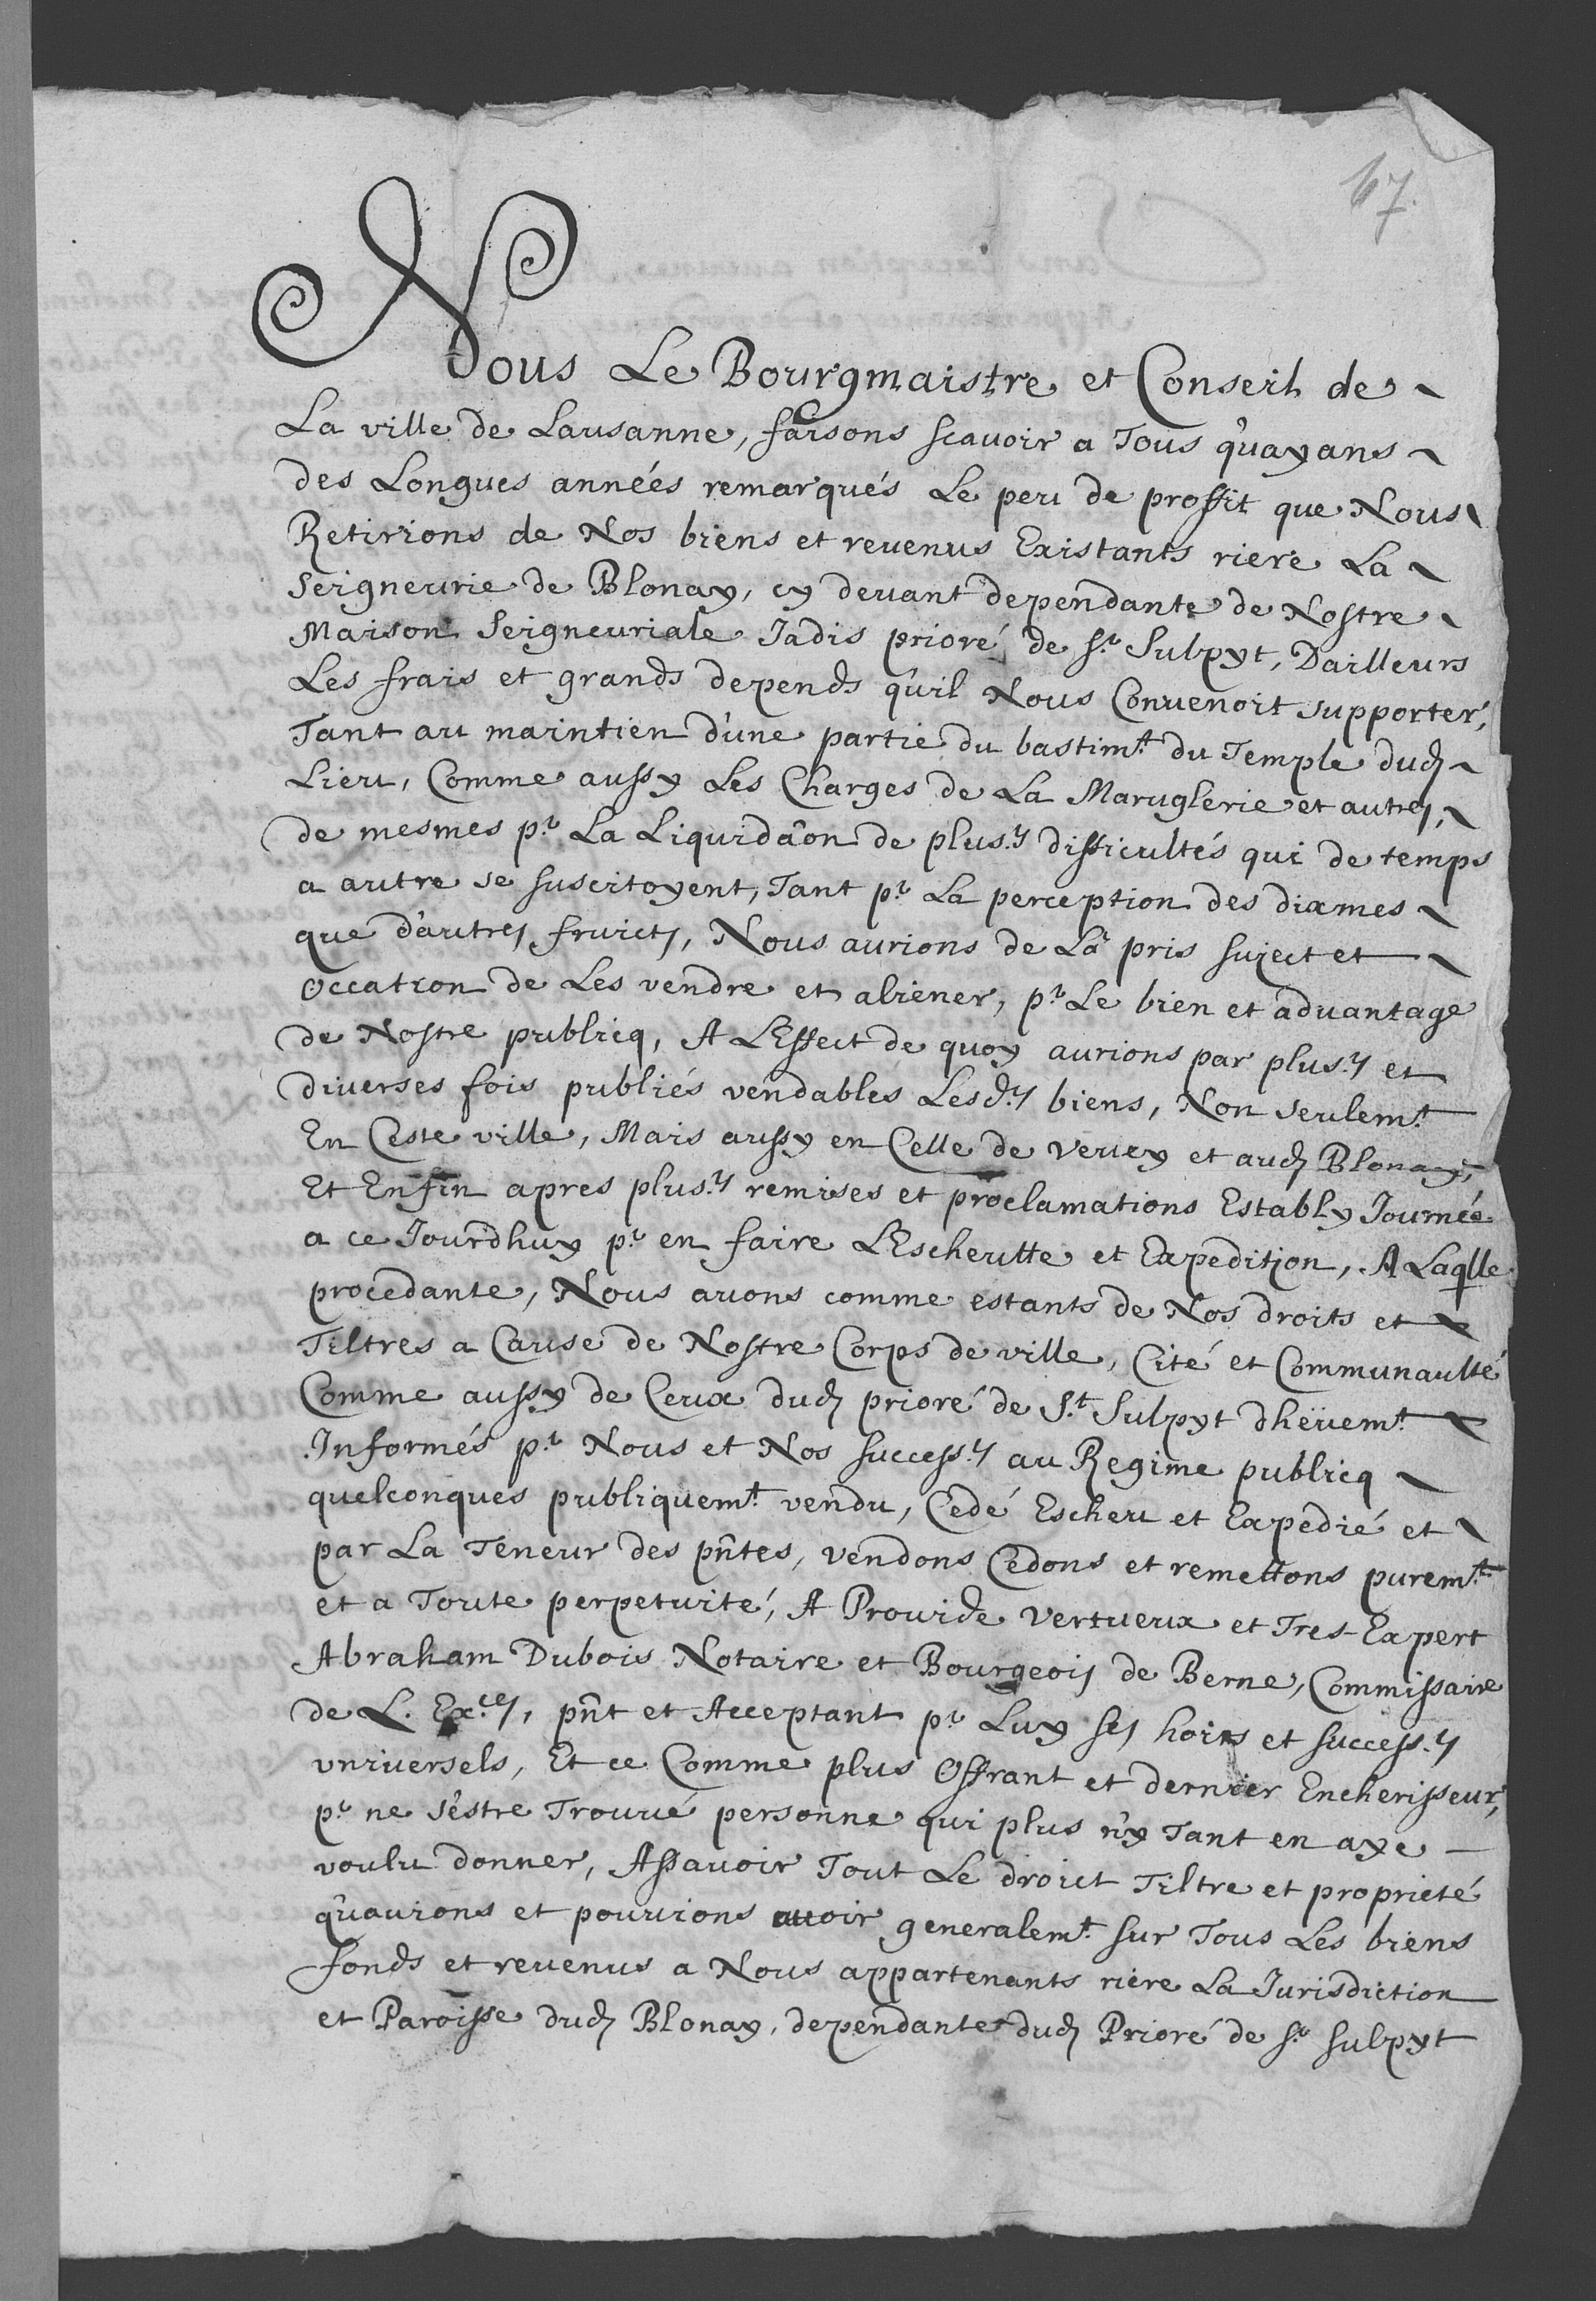 67.
Nous Le Bourgmaistre et Conseil de
La ville de Lausanne, faisons scavoir a Tous qu'ayans
des Longues années remarqués Le peu de proffit que Nous
Retirions de Nos biens et revenus Existants riere La
Seigneurie de Blonay, cy devant dependante de Nostre
Maison Seigneuriale Jadis prioré de S.t Sulpyt, Dailleurs
Les frais et grands depends qu'il Nous Convenoit supporter,
Tant au maintien d'une partie du bastim.t du Temple dud.
Lieu, Comme aussy Les Charges de La Maruglerie et autres,
de mesmes p.r La Liquidâon de plus.rs difficultés qui de temps
a autre se suscitoyent, Tant p.r La perception des dixmes
que d'autres fruicts, Nous aurions de Là pris suject et
Occation de Les vendre et aliener, p.r Le bien et advantage
de Nostre publicq, A L'Effect de quoy aurions par plus.rs et
diverses fois publiés vendables Lesd.s biens, Non seulem.t
En Ceste ville, Mais aussy en Celle de Vevey et aud. Blonay,
Et Enfin apres plus.rs remises et proclamations Estably Journée
a ce Jourdhuy p.r en faire L'Escheutte et Expedition, A Laqlle
procedante, Nous avons comme estants de Nos droits et
Tiltres a Cause de Nostre Corps de ville, Cité et Communaulté
Comme aussy de Ceux dud. prioré de S.t Sulpyt dhëuem.t
Informés p.r Nous et Nos success.rs au Regime publicq
quelconques publiquem.t vendu, Cedé Escheu et Expedié et
par La Teneur des pñtes, vendons Cedons et remettons purem.t
et a Toute perpetuité, A Provide Vertueux et Tres-Expert
Abraham Dubois Notaire et Bourgeois de Berne, Commissaire
de L. Ex.ces, pñt et Acceptant p.r Luy ses hoirs et success.rs
universels, Et ce Comme plus Offrant et dernier Encherisseur,
p.r ne s'estre Trouvé personne qui plus n'y Tant en aye
voulu donner, Assavoir Tout Le droict Tiltre et proprieté
qu'avions et pouvions avoir generalem.t sur Tous Les biens
fonds et revenus a Nous appartenants riere La Jurisdiction
et Paroisse dud. Blonay, dependantes dud. Prioré de S.t Sulpyt